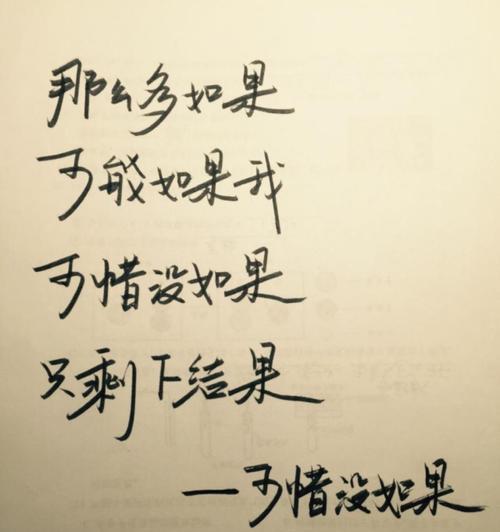 那么多如果
可能如果我
可惜没如果
只剩下结果
—可惜没如果